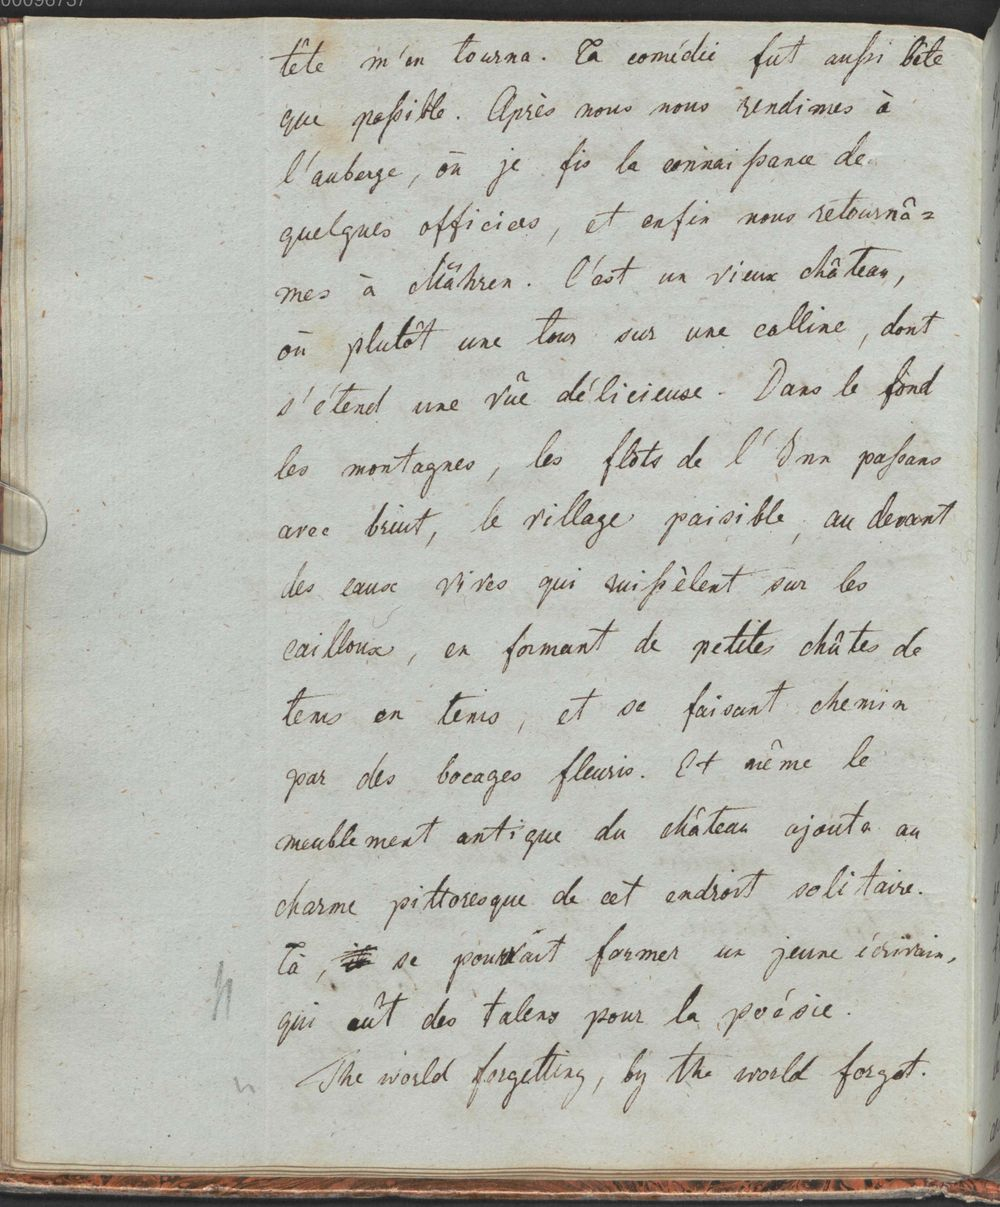 00096757
tête m'en tourna. La comédie fut aussi bête
que possible. Après nous nous rendimes à
l'auberge, où je fis la connaissance de
quelques officiers, et enfin nous retournâ=
mes à Mähren. C'est un vieux château,
ou plutôt une tour sur une colline, dont
s'étend une vûe délicieuse. Dans le fond
les montagnes, les flots de l'Inn passans
avec bruit, le village paisible, au devant
des eaux vives qui ruissèlent sur les
cailloux, en formant de petites chûtes de
tems en tems, et se faisant chemin
par des bocages fleuris. Et même le
meublement antique du château ajoute au
charme pittoresque de cet endroit solitaire.
Là, se pourrait former un jeune écrivain,
qui eût des talens pour la poésie.
The world forgetting, by the world forgot.